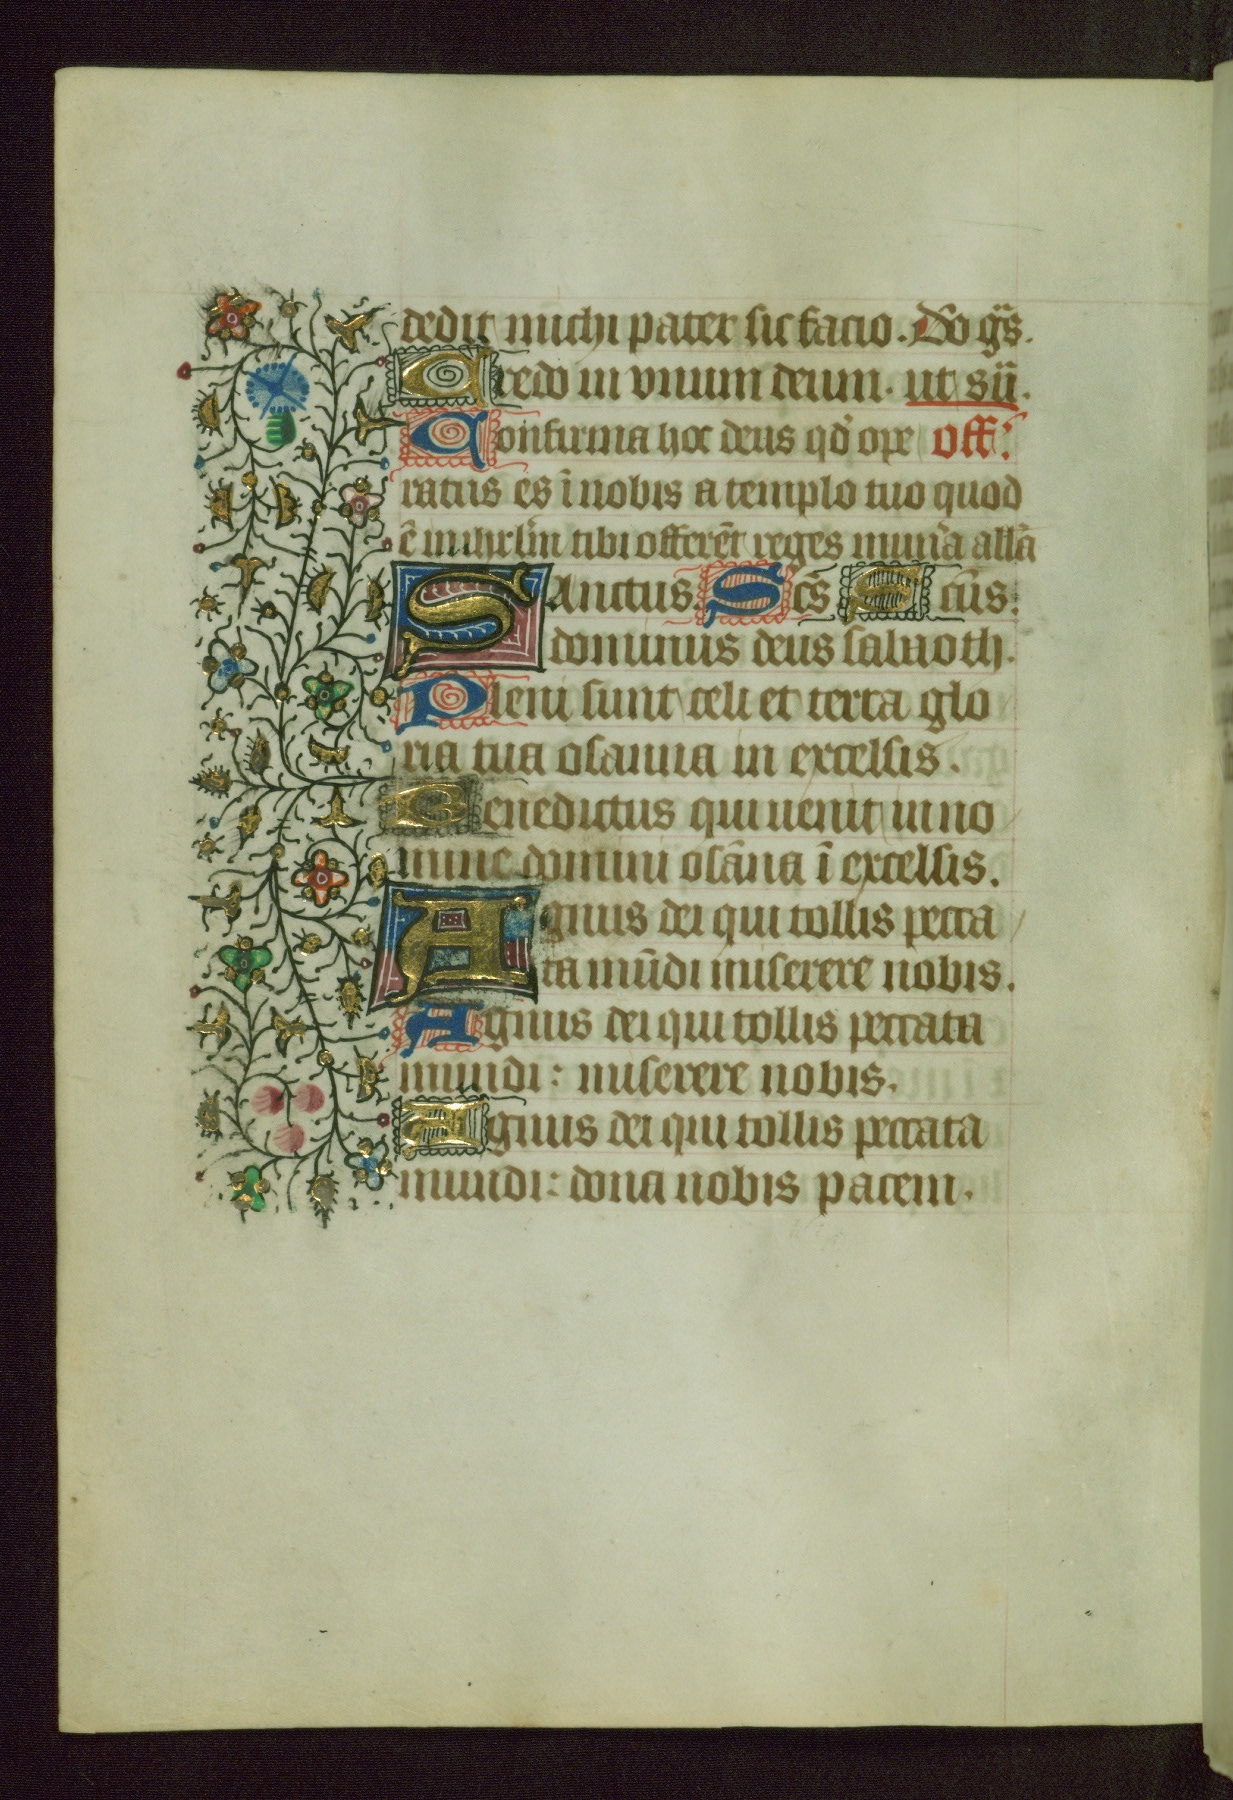 dedit michi pater sic facio. Do gr̄s.
Credo in vnum deum. ut sū.
Confirma hoc deus qd̄ ope off:
ratus es ī nobis a templo tuo quod
ē in ihrlm̄ tibi offerēt reges mun̄a allā
SAnctus. Scs̄ Scūs.
dominus deus sabaoth.
Pleni sunt celi et terra glo
ria tua osanna in excelsis.
Benedictus qui uenit in no
mine domini osāna ī excelsis.
Agnus dei qui tollis pecca
ta mūdi miserere nobis.
Agnus dei qui tollis peccata
mundi: miserere nobis.
Agnus dei qui tollis peccata
mundi: dona nobis pacem.